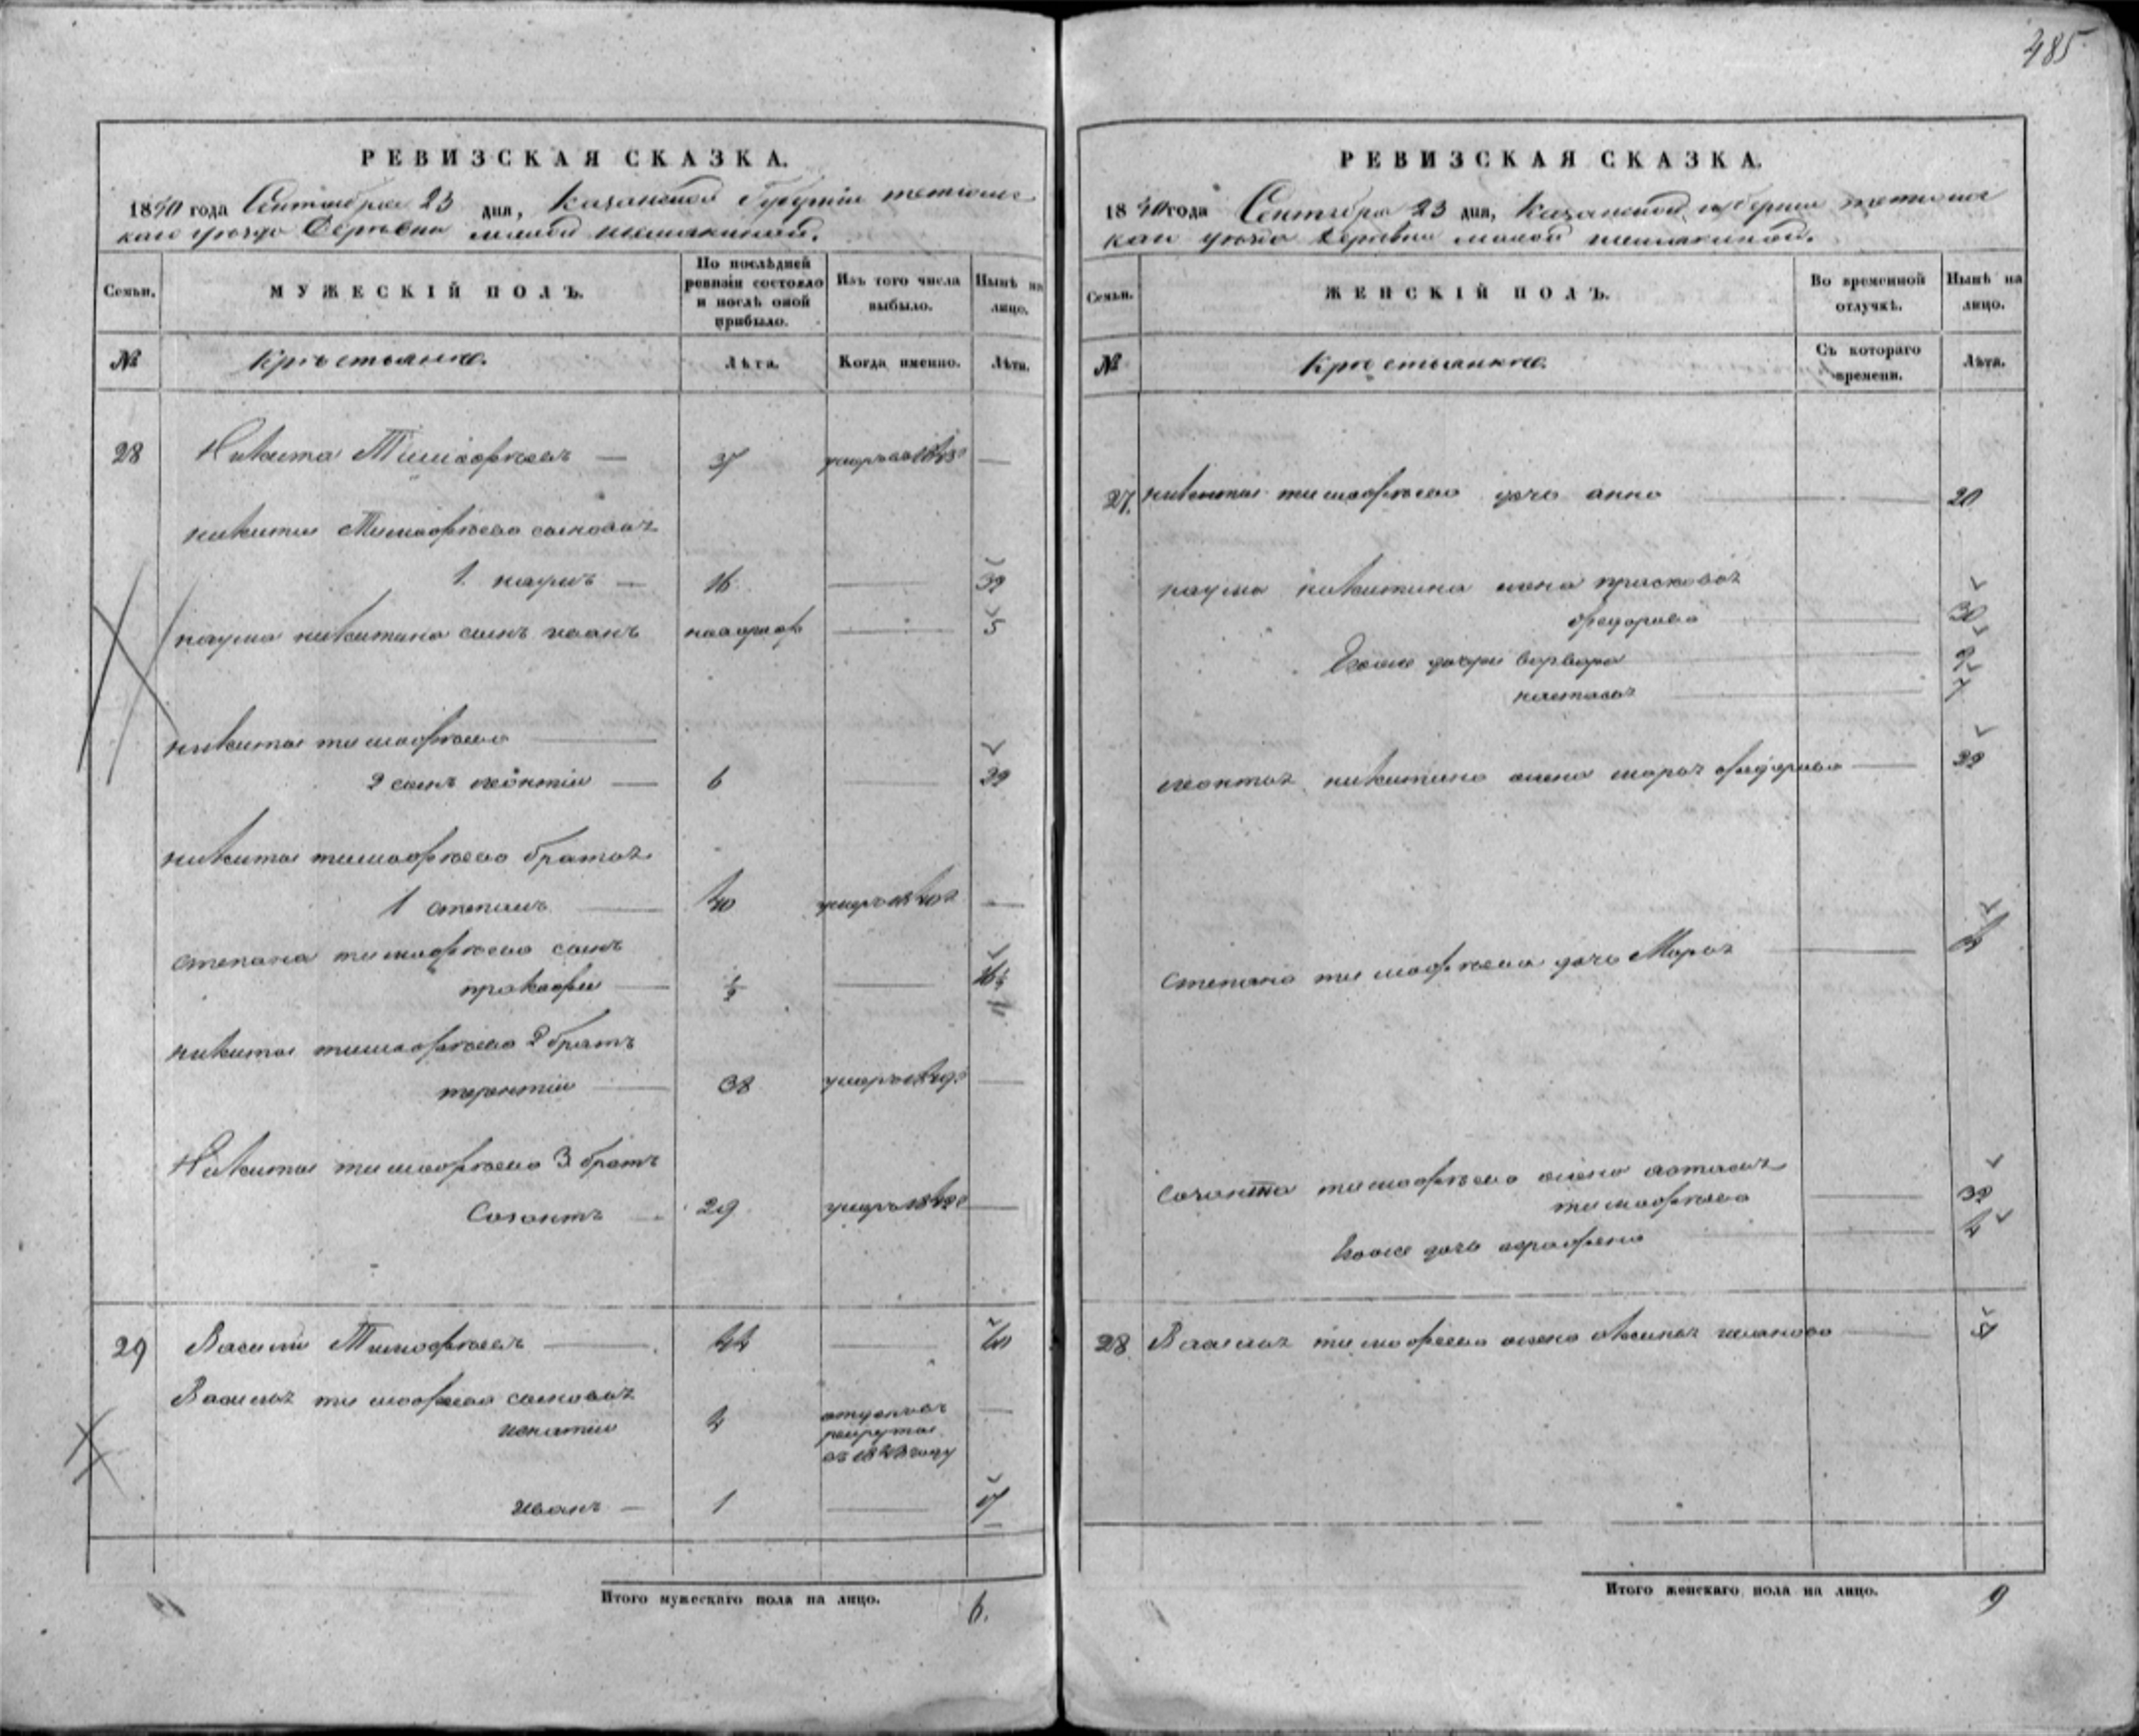 485
РЕВИЗСКАЯ СКАЗКА.
1850 года Сентября 23 дня, Казанской Губерніи тетюшс
каго уезда Деревни малой шемякиной.
Семьи.
МУЖЕСКІЙ ПОЛЪ.
По послѣдней ревизіи состояло и послѣ оной прибыло.
Изъ того числа выбыло.
Нынѣ на лицо.
№
Крестьяне.
Лѣта.
Когда именно.
Лѣта.
28 Никита Тимофѣевъ — 37 умеръ —
никиты Тимофѣева сыновья
1. наумъ — 16 — 32
наума никитина сынъ иванъ — 5
никиты тимофѣева
2 сынъ леонтіи — 6 — 22
никиты тимофѣева братья
1 степанъ — 40 —
степана тимофѣева сынъ
прокофи — 1/2 — 16 1/2
никиты тимофѣева 2 братъ
терентіи — 38 —
Никиты тимофѣева 3 братъ
Созонтъ — 29 —
29 Василіи Тимофѣевъ — 44 — 60
Василья тимофѣева сыновья
игнатіи 4 рекруты —
иванъ — 1 — 17
Итого мужескаго пола на лицо. 6.
РЕВИЗСКАЯ СКАЗКА.
1850 года Сентября 23 дня, Казанской губерніи тетюшс
каго уезда деревни малой шемякиной.
Семьи.
ЖЕНСКІЙ ПОЛЪ.
Во временной отлучкѣ.
Нынѣ на лицо.
№
Крестьянки.
Съ котораго времени.
Лѣта.
27. никиты тимофѣева дочь анна — 20
наума никитина жена прасковья
федорова — 30
Ево же дочери варвара — 9
наталья — 7
леонтья никитина жена марья федорова — 22
степана тимофѣева дочь Марья —
созонта тимофѣева жена
тимофѣева — 32
Ево же дочь аграфена — 4
28. Василья тимофеева жена аксинья иванова —
Итого женскаго пола на лицо. 9